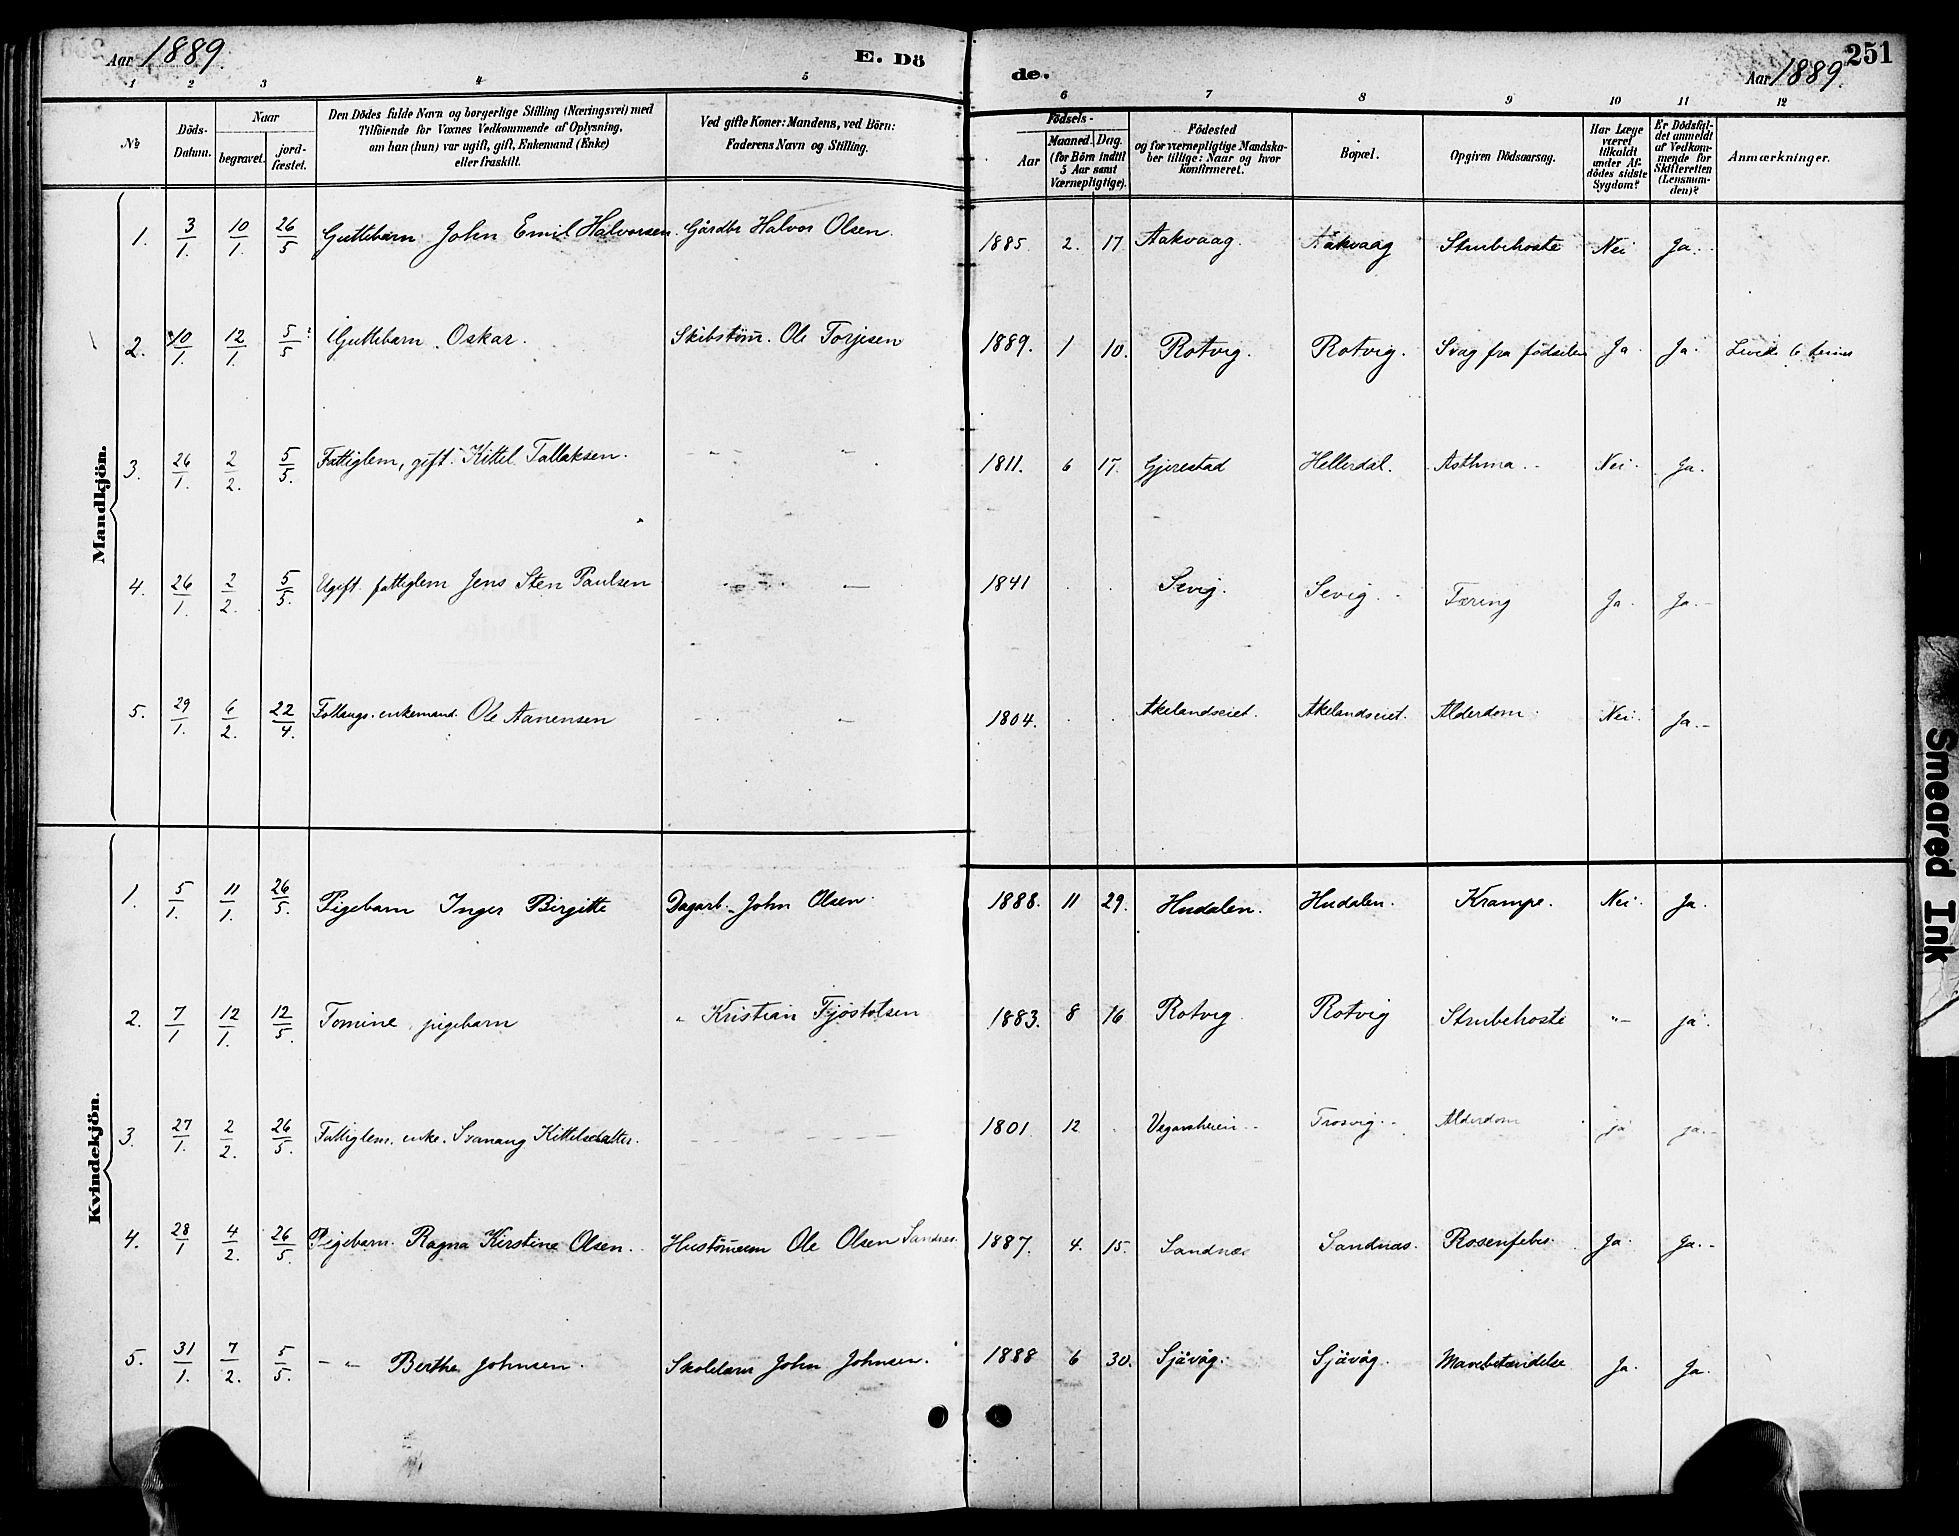 Aar 1889. E. Dö
de. Aar 1889. 251
1 2 3 4 5 6 7 8 9 10 11 12
№
Döds-Datum.
Naar
begravet.
jord-fæstet.
Den Dödes fulde Navn og borgerlige Stilling (Næringsvei) med
Tilföiende for Voxnes Vedkommende af Oplysning,
om han (hun) var ugift, gift, Enkemand (Enke)
eller fraskilt.
Ved gifte Koner: Mandens, ved Börn:
Faderens Navn og Stilling.
Födsels-
Aar
Maaned. Dag.
(for Börn indtil
5 Aar samt
Værnepligtige).
Födested
og for værnepligtige Mandska-
ber tillige: Naar og hvor
konfirmeret.
Bopæl.
Opgiven Dödsaarsag.
Har Læge
været
tilkaldt
under Af-
dödes sidste
Sygdom?
Er Dödsfal-
det anmeldt
af Vedkom-
mende for
Skifteretten
(Lensman-
den)?
Anmærkninger.
Mandkjön.
1. 3/1. 10/1. 26/5 Guttebarn John Emil Halvorsen. Gårdbr Halvor Olsen. 1885. 2. 17. Aakvaag. Aakvaag Strubehoste Nei Ja.
2. 10/1. 12/1. 5/5 Guttebarn. Oskar. Skibstöm. Ole Torjesen 1889. 1 10. Rotvig. Rotvig. Svag fra födselen Ja. Ja. Levede 6 timer
3. 26/1. 2/2. 5/5. Fattiglem, gift. Kittel Tallaksen. 1811. 6 17. Gjerestad Hellerdal. Asthma. Nei. Ja.
4. 26/1. 2/2. 5/5. Ugift fattiglem Jens Sten Paulsen 1841 Sevig. Sevig. Tæring Ja. Ja.
5. 29/1. 6/2. 22/4. enkemand. Ole Aanensen 1804. Akelandseiet. Akelandseiet. Alderdom. Nei. Ja.
Kvindekjön.
1. 5/1. 11/1. 26/5. Pigebarn Inger Birgitte Dagarb. John Olsen. 1888. 11 29. Hudalen. Hudalen. Krampe. Nei. Ja.
2. 7/1 12/1. 12/5. Tomine, pigebarn " Kristian Fjöstolsen 1883. 8 16 Rotvig. Rotvig Strubehoste "– ja.
3. 27/1. 2/2. 26/5. Fattiglem. enke. Svanaug Kittelsdatter. 1801. 12 Vegarsheien Trosvig. Alderdom ja ja.
4. 28/1 4/2. 26/5. Pigebarn. Ragna Kirstine Olsen. Hustömmerm Ole Olsen Sandnes. 1887. 4. 15. Sandnæs Sandnas. Rosenfeber Ja. Ja.
5. 31/1. 7/2. 5/5. – " Berthe Johnsen. John Johnsen. 1888 6 30. Sjävåg. Sjävåg. Mavebetændelse Ja. Ja.
Smeared Ink